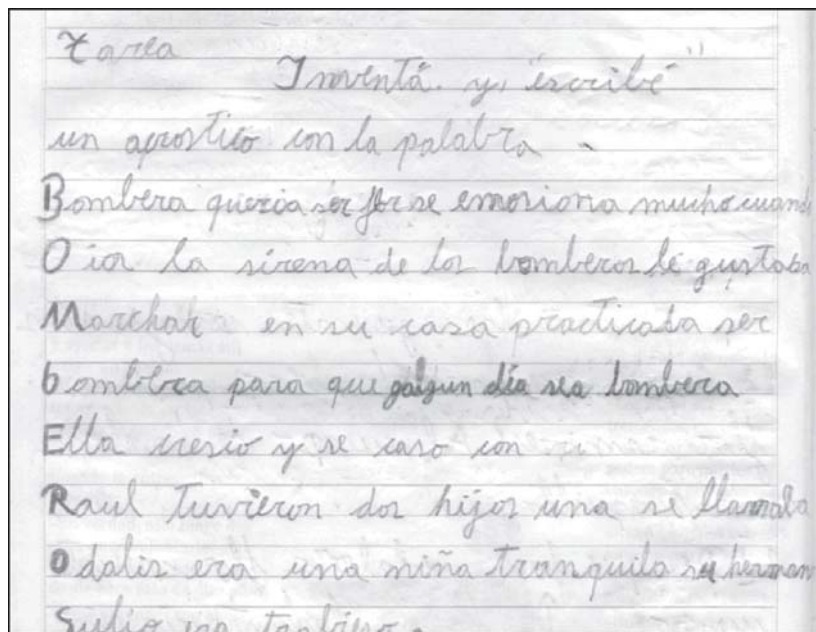 Tarea
Inventá. y, "escribé"
un aprostico con la palabra
Bombera queria ser se emosiona mucho cuand
Oia la sirena de los bomberos le gustaba
Marchar en su casa practicaba ser
bombera para que algun día sea bombera
Ella cresio y se caso con
Raul Tuvieron dos hijos una se llamaba
Odalis era una niña tranquila su herman
Sulio era tanbien